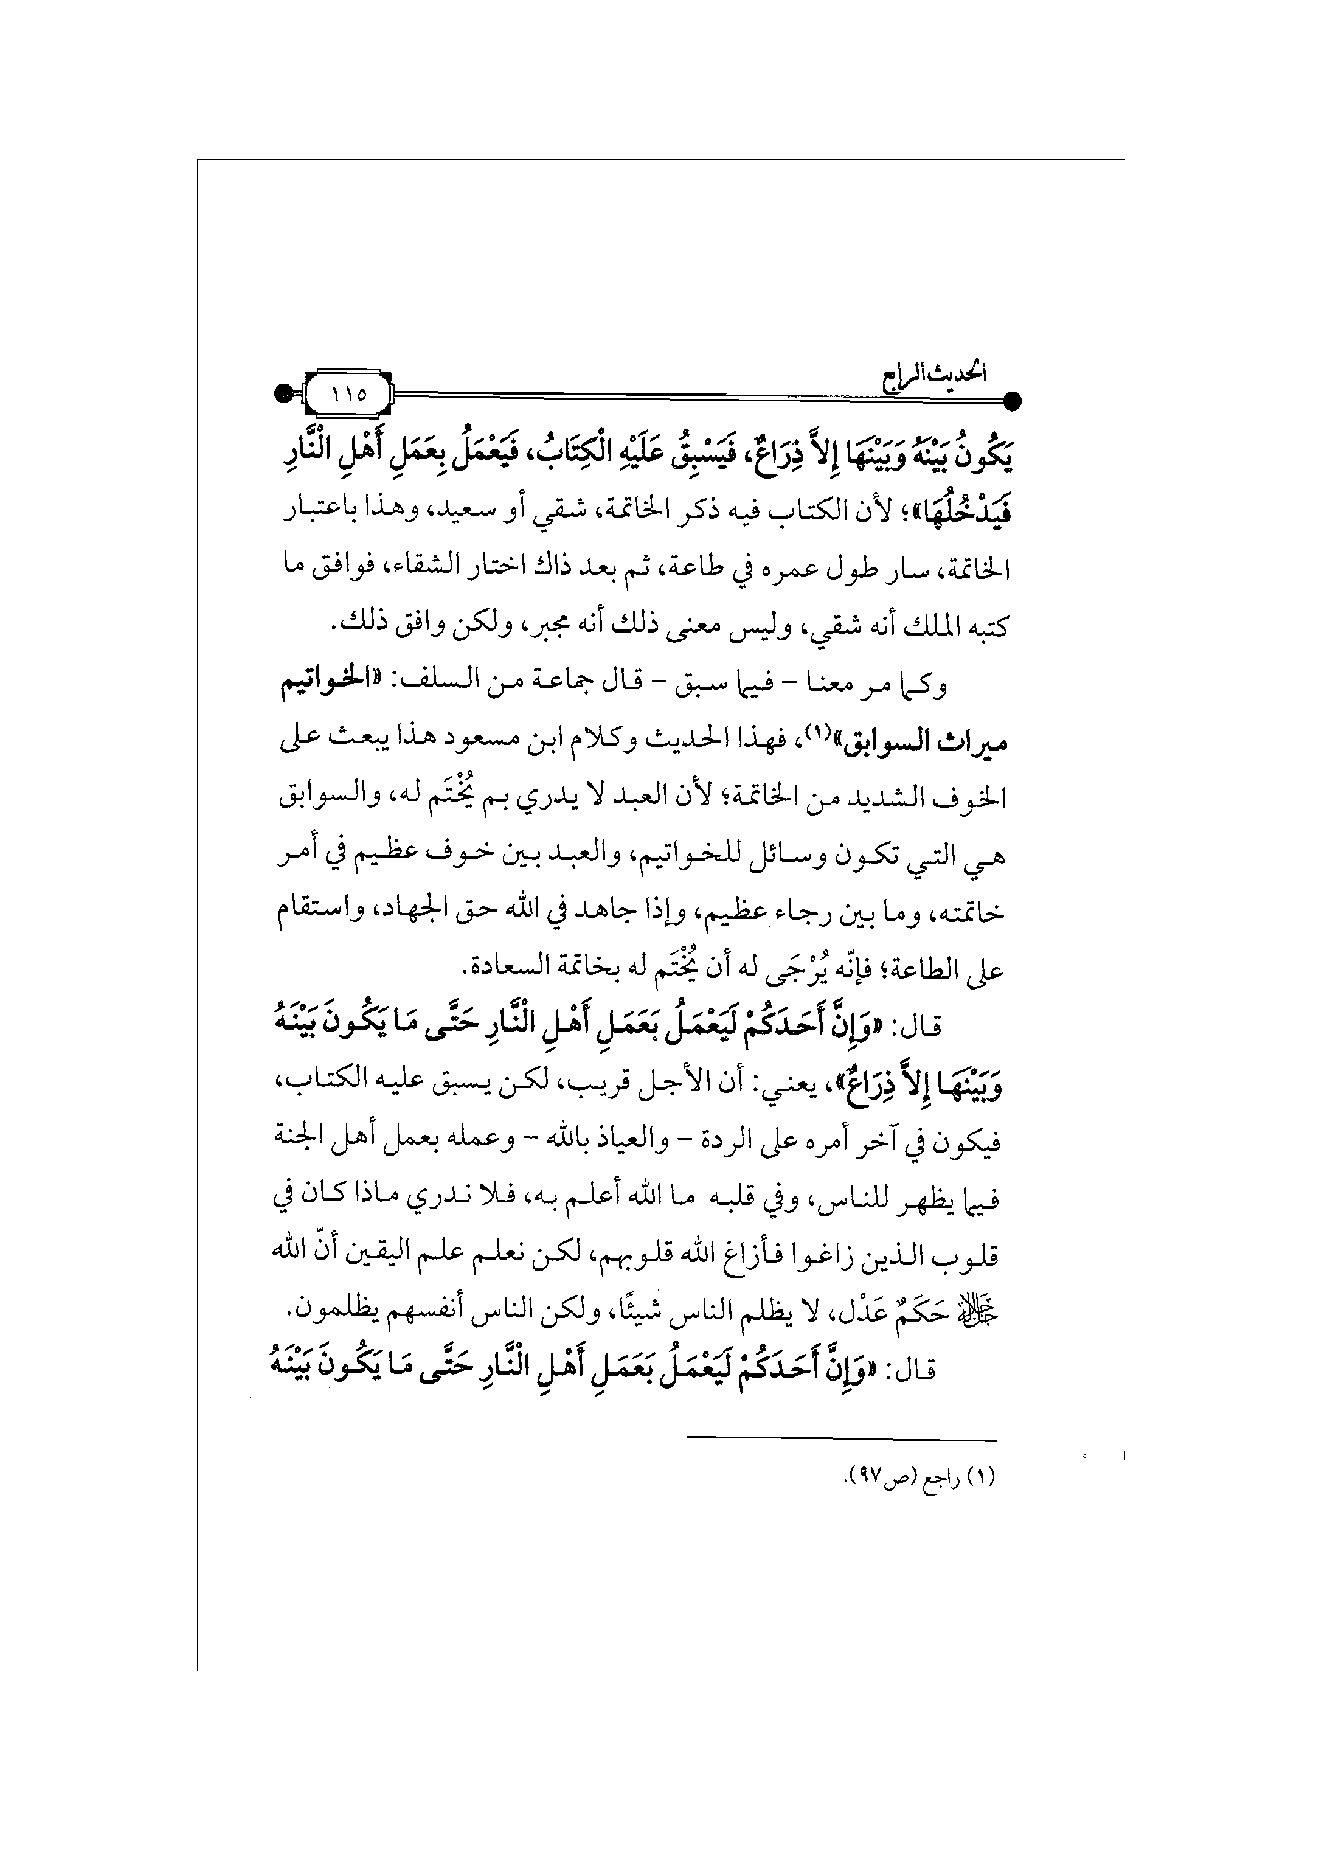 الحديث الرابع
١١٥
يَكُونُ بَيْنَهُ وَبَيْنَهَا إِلاَّ ذِرَاعٌ، فَيَسْبِقُ عَلَيْهِ الْكِتَابُ، فَيَعْمَلُ بِعَمَلِ أَهْلِ النَّارِ
فَيَدْخُلُهَا»؛ لأن الكتاب فيه ذكر الخاتمة، شقي أو سعيد، وهذا باعتبار
الخاتمة، سار طول عمره في طاعة، ثم بعد ذاك اختار الشقاء، فوافق ما
كتبه الملك أنه شقي، وليس معنى ذلك أنه مجبر، ولكن وافق ذلك.
وكما مر معنا – فيما سبق – قال جماعة من السلف: «الخواتيم
ميراث السوابق»(١)، فهذا الحديث وكلام ابن مسعود هذا يبعث على
الخوف الشديد من الخاتمة؛ لأن العبد لا يدري بم يُخْتَم له، والسوابق
هي التي تكون وسائل للخواتيم، والعبد بين خوف عظيم في أمر
خاتمته، وما بين رجاء عظيم، وإذا جاهد في الله حق الجهاد، واستقام
على الطاعة؛ فإنّه يُرْجَى له أن يُخْتَم له بخاتمة السعادة.
قال: «وَإِنَّ أَحَدَكُمْ لَيَعْمَلُ بَعَمَلِ أَهْلِ النَّارِ حَتَّى مَا يَكُونَ بَيْنَهُ
وَبَيْنَهَا إِلاَّ ذِرَاعٌ»، يعني: أن الأجل قريب، لكن يسبق عليه الكتاب،
فيكون في آخر أمره على الردة – والعياذ بالله – وعمله بعمل أهل الجنة
فيما يظهر للناس، وفي قلبه ما الله أعلم به، فلا ندري ماذا كان في
قلوب الذين زاغوا فأزاغ الله قلوبهم، لكن نعلم علم اليقين أنّ الله
ﷻ حَكَمٌ عَدْل، لا يظلم الناس شيئًا، ولكن الناس أنفسهم يظلمون.
قال: «وَإِنَّ أَحَدَكُمْ لَيَعْمَلُ بَعَمَلِ أَهْلِ النَّارِ حَتَّى مَا يَكُونَ بَيْنَهُ
(١) راجع (ص٩٧).